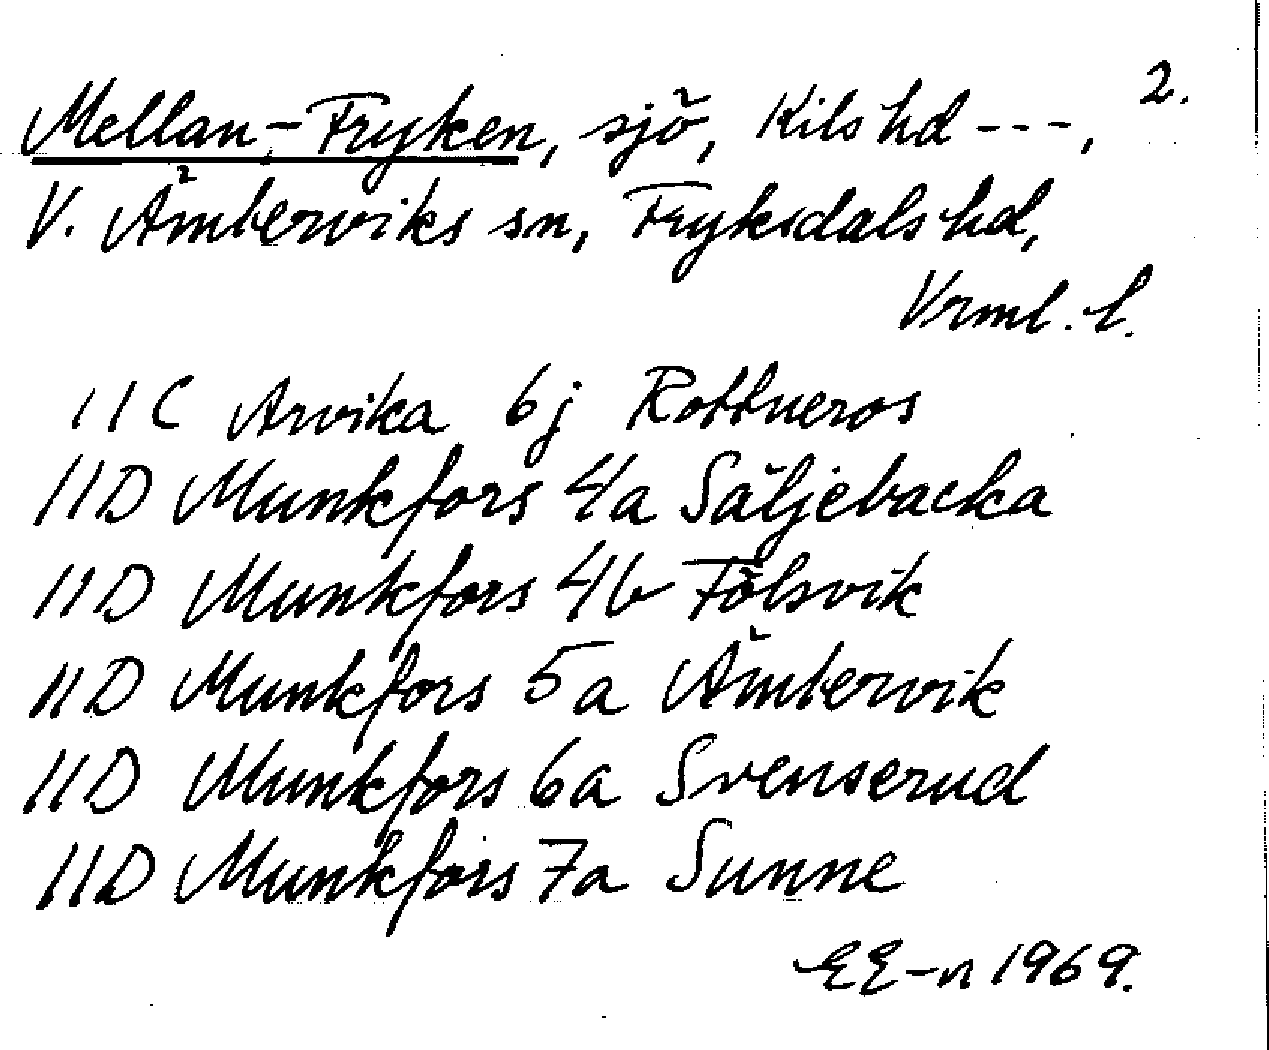 2.
Mellan-Fryken, sjö, Kils hd ---,
V. Ämterviks sn, Fryksdals hd,
Vrml. l.
11C Arvika 6j Rottneros
11D Munkfors 4a Säljebacka
11D Munkfors 4b Tölsvik
11D Munkfors 5a Ämtervik
11D Munkfors 6a Svenserud
11D Munkfors 7a Sunne
EE-n 1969.